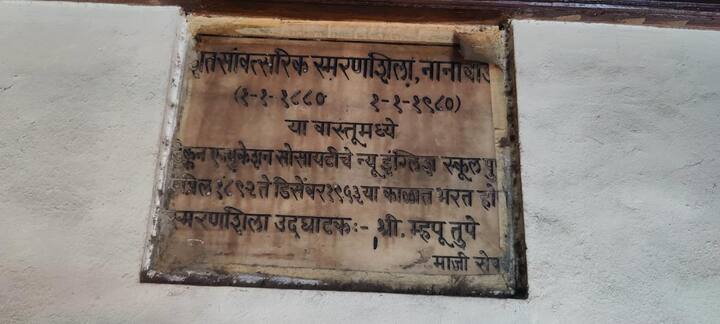 शतसांवत्सरिक स्मरणशिला, नानावाडा
(१-१-१८८० १-१-१९८०)
या वास्तूमध्ये
एज्युकेशन सोसायटीचे न्यू इंग्लिश स्कूल पु
१८९२ ते डिसेंबर १९५३ या काळात भरत हो
स्मरणशिला उद्घाटक:- श्री. म्हपू तुपे
माजी सेव